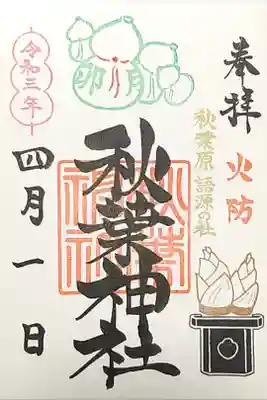 奉拝
火防
秋葉原 語源の社
卯月
秋葉神社
令和三年
四月一日